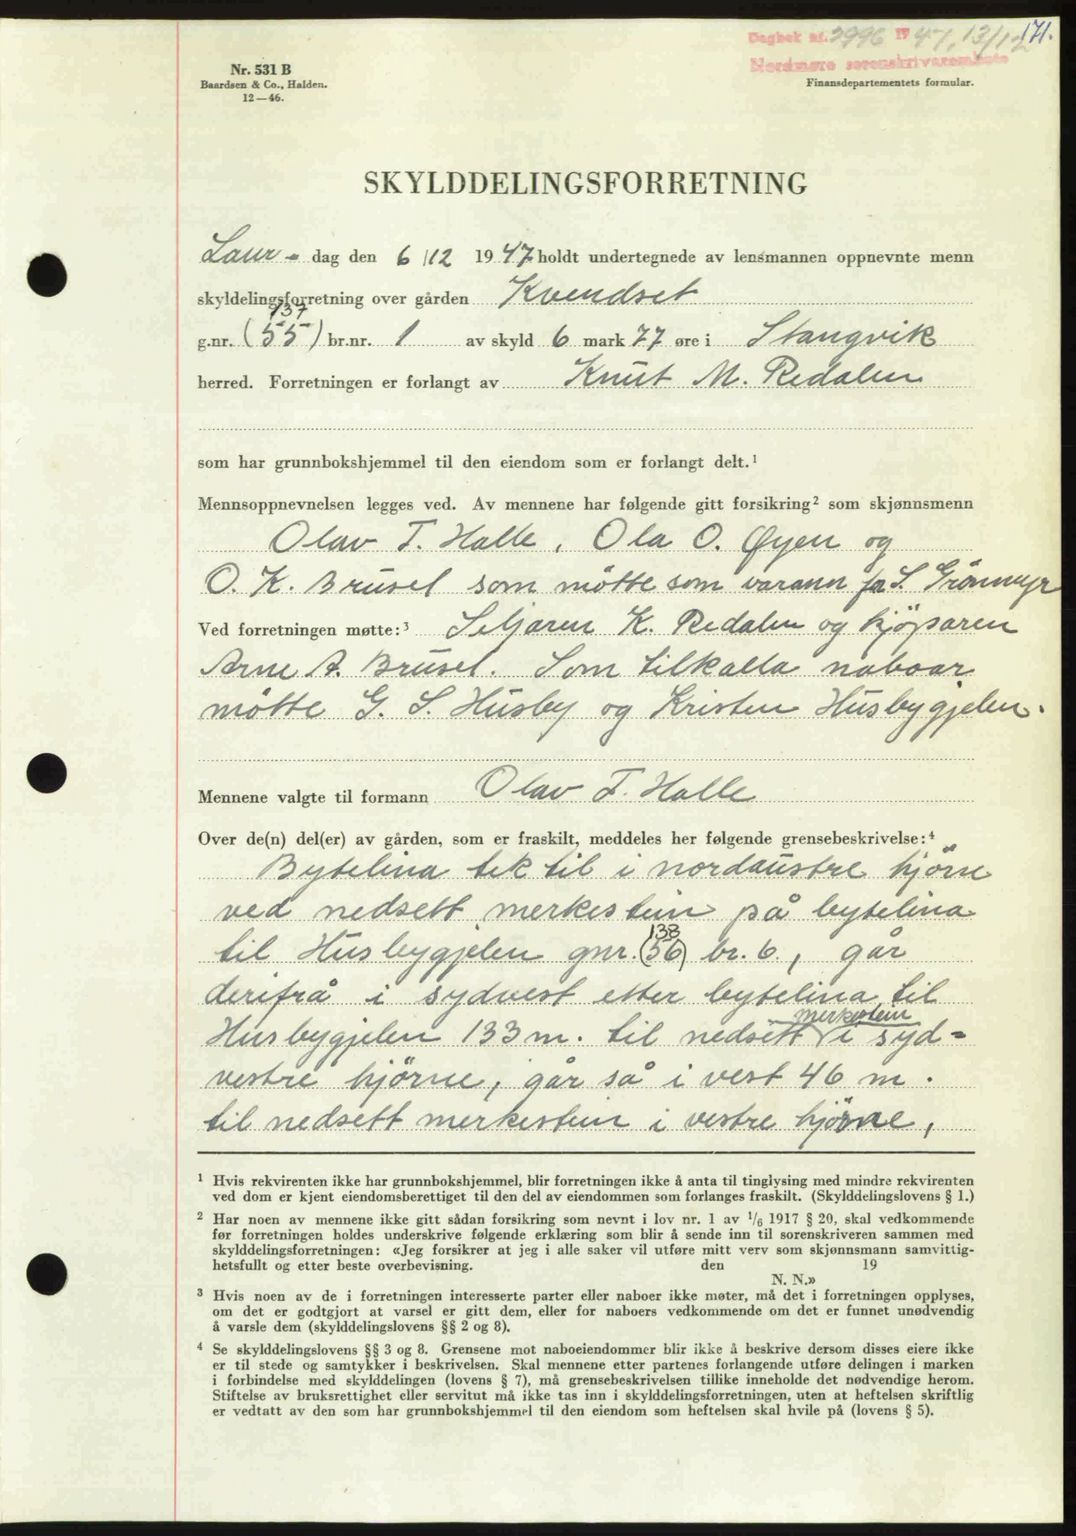 171.
Dagbok nr. 2996 19 47, 13/12
Nordmøre sorenskriverembete
Nr. 531 B
Baardsen & Co., Halden.
12—46.
Finansdepartementets formular.
SKYLDDELINGSFORRETNING
Laur- dag den 6/12 1947 holdt undertegnede av lensmannen oppnevnte menn
skyldelingsforretning over gården Kvendset
137
g.nr. (55) br.nr. 1 av skyld 6 mark 77 øre i Stangvik
herred. Forretningen er forlangt av Knut M. Redalen
som har grunnbokshjemmel til den eiendom som er forlangt delt.¹
Mennsoppnevnelsen legges ved. Av mennene har følgende gitt forsikring² som skjønnsmenn
Olav T. Halle, Ola O. Øyen og
O. K. Brusel som møtte som varann for S. Grönmyr
Ved forretningen møtte:³ Seljaren K. Redalen og kjöparen
Arne A. Brusel. Som tilkalla naboar
møtte G. S. Husby og Kristen Husbygjelen.
Mennene valgte til formann Olav T. Halle
Over de(n) del(er) av gården, som er fraskilt, meddeles her følgende grensebeskrivelse:⁴
Bytelina tek til i nordaustre hjörne
ved nedsett merkestein på bytelina
138
til Husbygjelen gnr. (56) br. 6, går
derifrå i sydvest etter bytelina til
merkestein
Husbygjelen 133 m. til nedsett i syd=
vestre hjörne, går så i vest 46 m.
til nedsett merkestein i vestre hjörne,
¹ Hvis rekvirenten ikke har grunnbokshjemmel, blir forretningen ikke å anta til tinglysing med mindre rekvirenten
ved dom er kjent eiendomsberettiget til den del av eiendommen som forlanges fraskilt. (Skylddelingslovens § 1.)
² Har noen av mennene ikke gitt sådan forsikring som nevnt i lov nr. 1 av 1/6 1917 § 20, skal vedkommende
før forretningen holdes underskrive følgende erklæring som blir å sende inn til sorenskriveren sammen med
skylddelingsforretningen: «Jeg forsikrer at jeg i alle saker vil utføre mitt verv som skjønnsmann samvittig-
hetsfullt og etter beste overbevisning. den 19
N. N.»
³ Hvis noen av de i forretningen interesserte parter eller naboer ikke møter, må det i forretningen opplyses,
om det er godtgjort at varsel er gitt dem, eller for naboers vedkommende om det er funnet unødvendig
å varsle dem (skylddelingslovens §§ 2 og 8).
⁴ Se skylddelingslovens §§ 3 og 8. Grensene mot naboeiendommer blir ikke å beskrive dersom disses eiere ikke
er til stede og samtykker i beskrivelsen. Skal mennene etter partenes forlangende utføre delingen i marken
i forbindelse med skylddelingen (lovens § 7), må grensebeskrivelsen tillike inneholde det nødvendige herom.
Stiftelse av bruksrettighet eller servitut må ikke tas inn i skylddelingsforretningen, uten at heftelsen skriftlig
er vedtatt av den som har grunnbokshjemmel til den eiendom som heftelsen skal hvile på (lovens § 5).